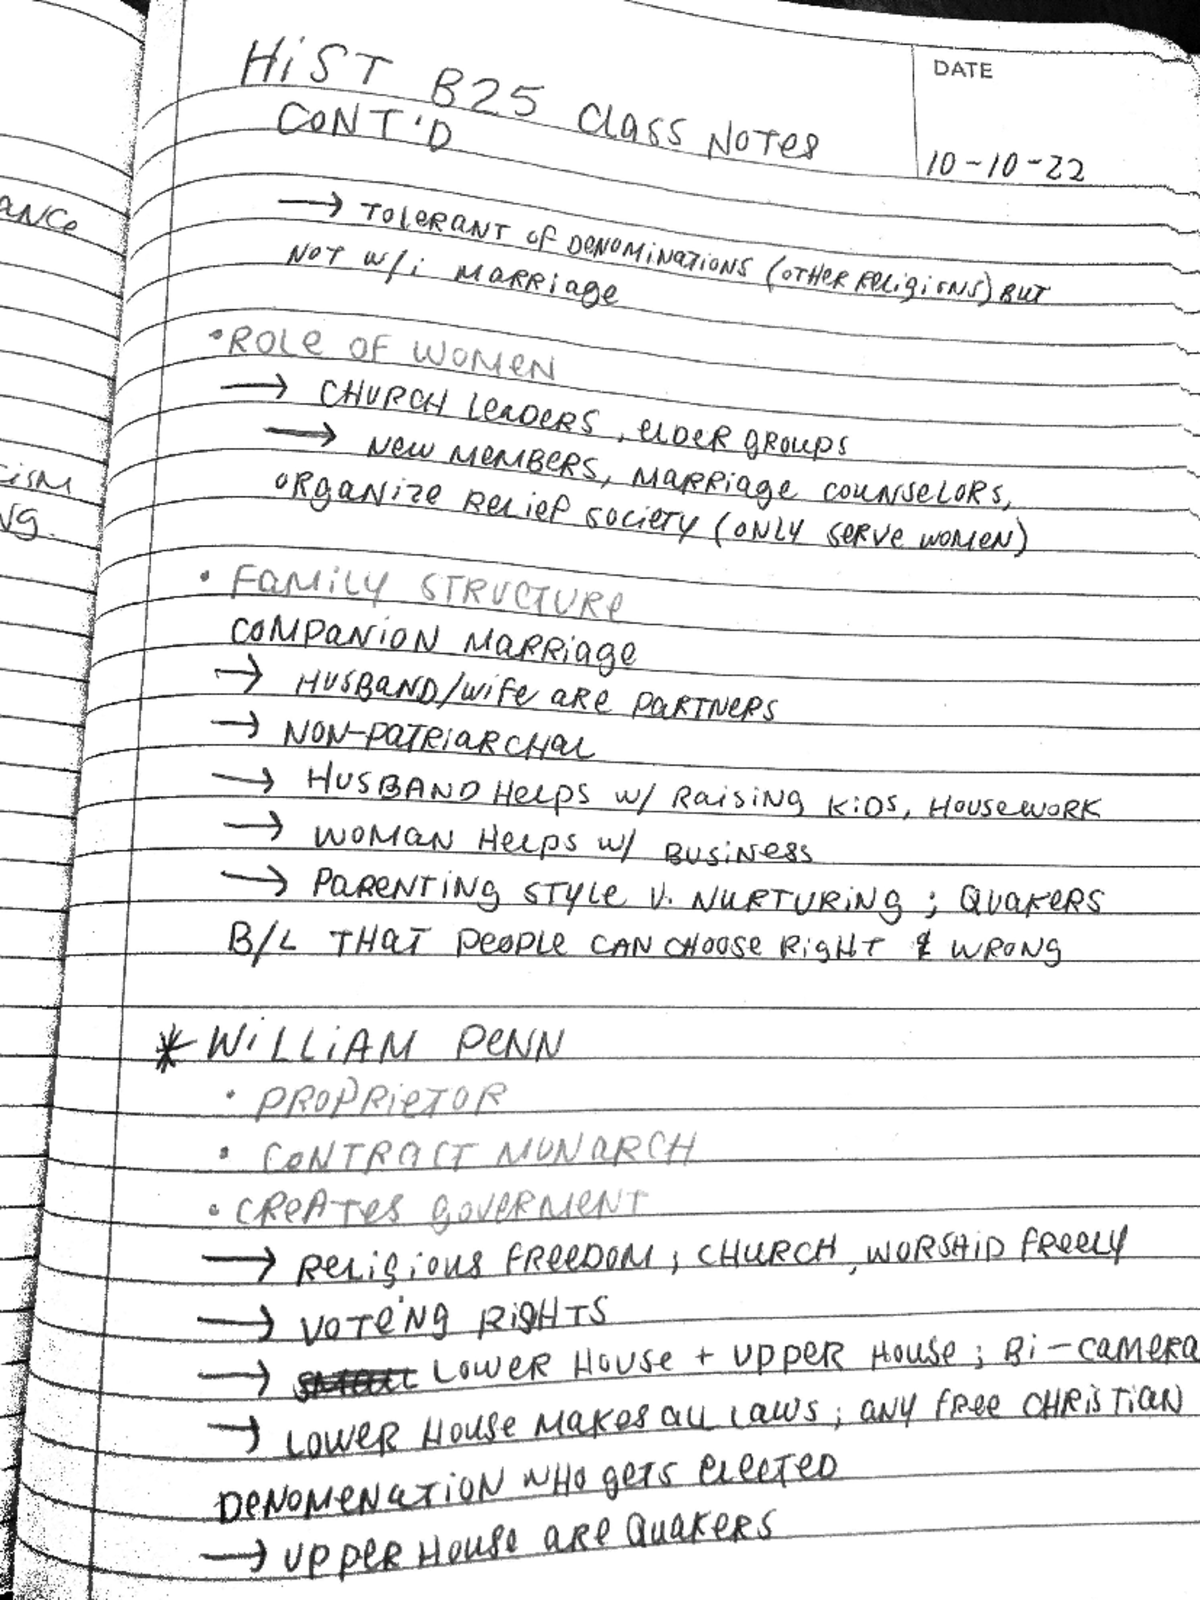 HiST B25 Class NOTes
CONT'D
DATE
10-10-22
ANCe
→ TOLERANT OF DENOMiNATIONS (OTHER RELigiONS) BUT
NOT w/i MARRiage
• ROLE OF WOMEN
→ CHURCH LEADERS, ELDER gROUPS
→ NEW MEMBERS, MARRiage COUNSELORS,
ORGANIZE RELIEF SOCIETY (ONLY SERVE WOMEN)
ciSM
NG.
• FAMiLY STRUCTURE
COMPANION MARRiage
→ HUSBAND/WiFE ARE PARTNERS
→ NON-PATRIARCHAL
→ HUSBAND HELPS w/ RAiSiNg KiDS, HOUSEWORK
→ WOMAN HELPS w/ BUSiNESS
→ PARENTING STYLE V. NURTURiNg ; QUAKERS
B/L THAT PEOPLE CAN CHOOSE RIGHT & WRONG
* WiLLiAM PENN
• PROPRiETOR
• CONTRACT MONARCH
• CREATES GOVERMENT
→ RELigiOUS FREEDOM ; CHURCH, WORSHIP FREELY
→ VOTEiNg RiGHTS
→ LOWER HOUSE + UPPER HOUSE ; Bi-CAMERA
→ LOWER HOUSE MAKES ALL LAWS ; ANY FREE CHRiSTiAN
DENOMENATiON WHO GETS ELECTED
→ UPPER HOUSE ARE QUAKERS